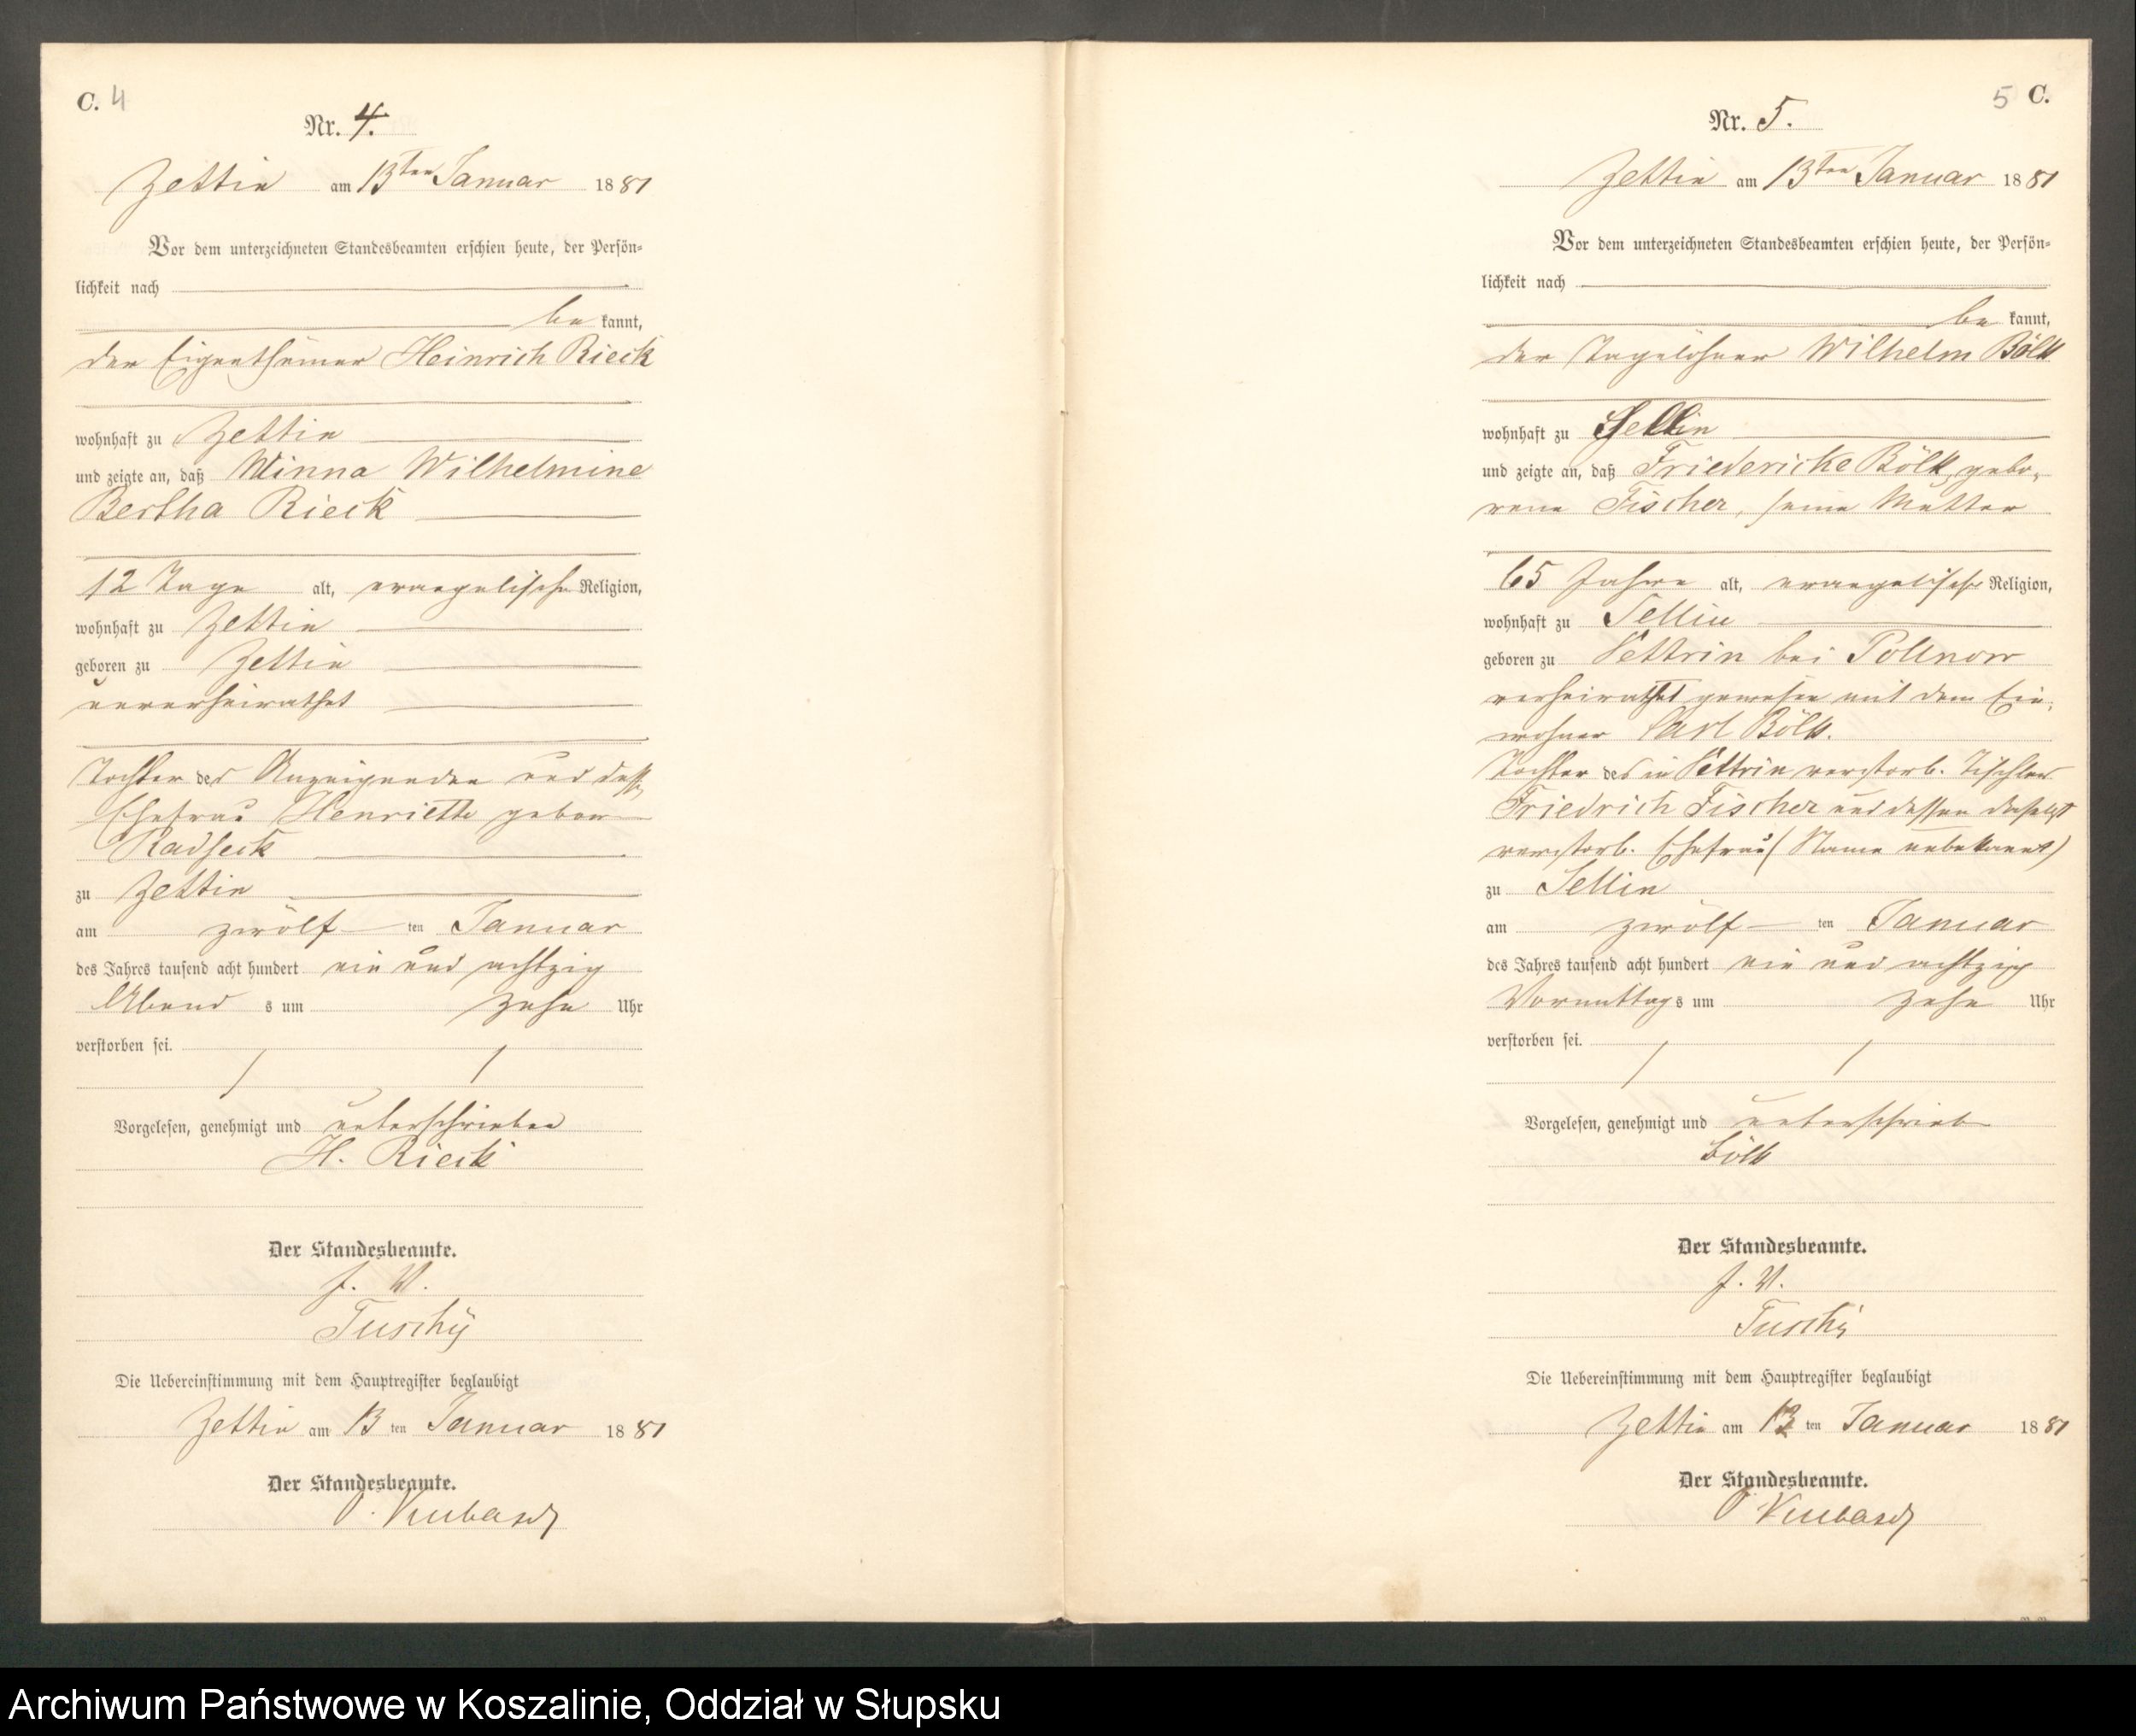 C. 4
Nr. 4.
Zettin am 13ten Januar 1881
Vor dem unterzeichneten Standesbeamten erschien heute, der Persön-
lichkeit nach
be kannt,
der Eigenthümer Heinrich Rieck
wohnhaft zu Zettin
und zeigte an, daß Minna Wilhelmine
Bertha Rieck
12 Tage alt, evangelischer Religion,
wohnhaft zu Zettin
geboren zu Zettin
unverheirathet
Tochter des Anzeigenden und dessen
Ehefrau Henriette geboren
Radseck
zu Zettin
am zwölf ten Januar
des Jahres tausend acht hundert ein und achtzig
Abend s um zehn Uhr
verstorben sei.
Vorgelesen, genehmigt und unterschrieben
H. Rieck
Der Standesbeamte.
J. V.
Tuschÿ
Die Uebereinstimmung mit dem Hauptregister beglaubigt
Zettin am 13 ten Januar 1881
Der Standesbeamte.
5 C.
Nr. 5.
Zettin am 13ten Januar 1881
Vor dem unterzeichneten Standesbeamten erschien heute, der Persön-
lichkeit nach
be kannt,
der Tagelöhner Wilhelm Bölk
wohnhaft zu Sellin
und zeigte an, daß Friedericke Bölk, gebo-
rene Fischer, seine Mutter
65 Jahre alt, evangelischer Religion,
wohnhaft zu Sellin
geboren zu Vettrin bei Pollnow
verheirathet gewesen mit dem Ein-
wohner Carl Bölk.
Tochter des in Vettrin verstorb. Tischler
Friedrich Fischer und dessen daselbst
verstorb. Ehefrau (Name unbekannt)
zu Sellin
am zwölf ten Januar
des Jahres tausend acht hundert ein und achtzig
Vormittag s um zehn Uhr
verstorben sei.
Vorgelesen, genehmigt und unterschrieb
Bölk
Der Standesbeamte.
J. V.
Tuschÿ
Die Uebereinstimmung mit dem Hauptregister beglaubigt
Zettin am 13 ten Januar 1881
Der Standesbeamte.
Archiwum Państwowe w Koszalinie, Oddział w Słupsku